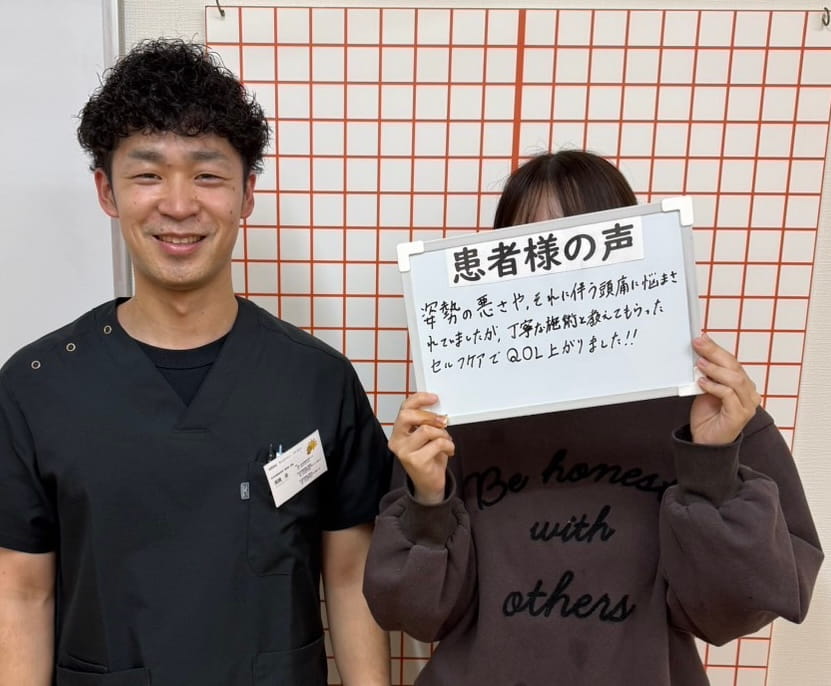 患者様の声
姿勢の悪さや、それに伴う頭痛に悩まさ
れていましたが、丁寧な施術と教えてもらった
セルフケアでQOL上がりました!!
Be honest
with
others